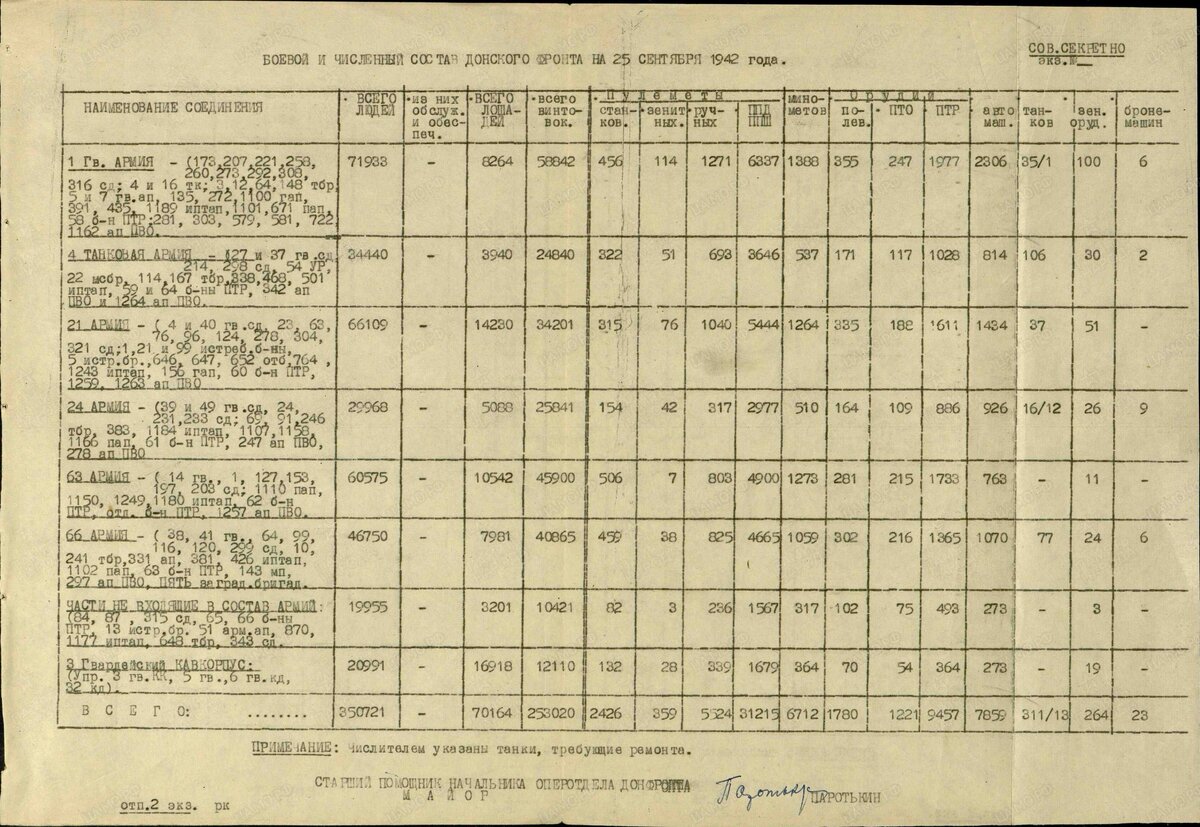 СОВ.СЕКРЕТНО
экз.№__
БОЕВОЙ И ЧИСЛЕННЫЙ СОСТАВ ДОНСКОГО ФРОНТА НА 25 СЕНТЯБРЯ 1942 года.
НАИМЕНОВАНИЕ СОЕДИНЕНИЯ
ВСЕГО ЛЮДЕЙ
из них обслуж. и обес- печ.
ВСЕГО ЛОША- ДЕЙ
всего винто- вок.
Пулеметы
стан- ков.
зенит ных.
руч- ных
ППД ППШ
мино- метов
Орудий
по- лев.
ПТО
ПТР
авто маш.
тан- ков
зен. оруд.
броне- машин
1 Гв. АРМИЯ - (173,207,221,258, 71933 - 8264 58842 456 114 1271 6337 1388 355 247 1977 2306 35/1 100 6
260,273,292,308,
316 сд; 4 и 16 тк; 3,12,64,148 тбр,
5 и 7 гв.ап, 135, 272,1100 гап,
391, 435, 1189 иптап,1101,671 пап,
58 б-н ПТР:281, 303, 579, 581, 722
1162 ап ПВО.
4 ТАНКОВАЯ АРМИЯ - (27 и 37 гв.сд, 34440 - 3940 24840 322 51 693 3646 537 171 117 1028 814 106 30 2
214, 298 сд, 54 УР,
22 мсбр, 114,167 тбр,338,468, 501
иптап, 59 и 64 б-ны ПТР, 342 ап
ПВО и 1264 ап ПВО.
21 АРМИЯ - ( 4 и 40 гв.сд, 23, 63, 66109 - 14230 34201 315 76 1040 5444 1264 335 188 1611 1434 37 51 -
76, 96, 124, 278, 304,
321 сд;1,21 и 99 истреб.б-ны,
5 истр.бр.,646, 647, 652 отб,764 ,
1243 иптап, 156 гап, 60 б-н ПТР,
1259, 1263 ап ПВО
24 АРМИЯ - (39 и 49 гв.сд, 24, 29968 - 5088 25841 154 42 317 2977 510 164 109 886 926 16/12 26 9
231,233 сд; 69, 91,246
тбр, 383, 1184 иптап, 1107,1158,
1166 пап, 61 б-н ПТР, 247 ап ПВО,
278 ап ПВО
63 АРМИЯ - ( 14 гв., 1, 127,153, 60575 - 10542 45900 506 7 803 4900 1273 281 215 1733 763 - 11 -
197, 203 сд; 1110 пап,
1150, 1249,1180 иптап, 62 б-н
ПТР, отд. б-н ПТР, 1257 ап ПВО.
66 АРМИЯ - ( 38, 41 гв., 64, 99, 46750 - 7981 40865 459 38 825 4665 1059 302 216 1365 1070 77 24 6
116, 120, 299 сд, 10,
241 тбр,331 ап, 381, 426 иптап,
1102 пап, 63 б-н ПТР, 143 мп,
297 ап ПВО, ПЯТЬ заград.бригад.
ЧАСТИ НЕ ВХОДЯЩИЕ В СОСТАВ АРМИЙ: 19955 - 3201 10421 82 3 236 1567 317 102 75 493 273 - 3 -
(84, 87 , 315 сд, 65, 66 б-ны
ПТР, 13 истр.бр. 51 арм.ап, 870,
1177 иптап, 648 тбр, 343 сд.
3 Гвардейский КАВКОРПУС: 20991 - 16918 12110 132 28 339 1679 364 70 54 364 273 - 19 -
(Упр. 3 гв.КК, 5 гв.,6 гв.кд,
32 кд).
ВСЕГО: ........ 350721 - 70164 253020 2426 359 5524 31215 6712 1780 1221 9457 7859 311/13 264 23
ПРИМЕЧАНИЕ: Числителем указаны танки, требующие ремонта.
СТАРШИЙ ПОМОЩНИК НАЧАЛЬНИКА ОПЕРОТДЕЛА ДОНФРОНТА
МАЙОР
ПАРОТЬКИН
отп.2 экз. рк